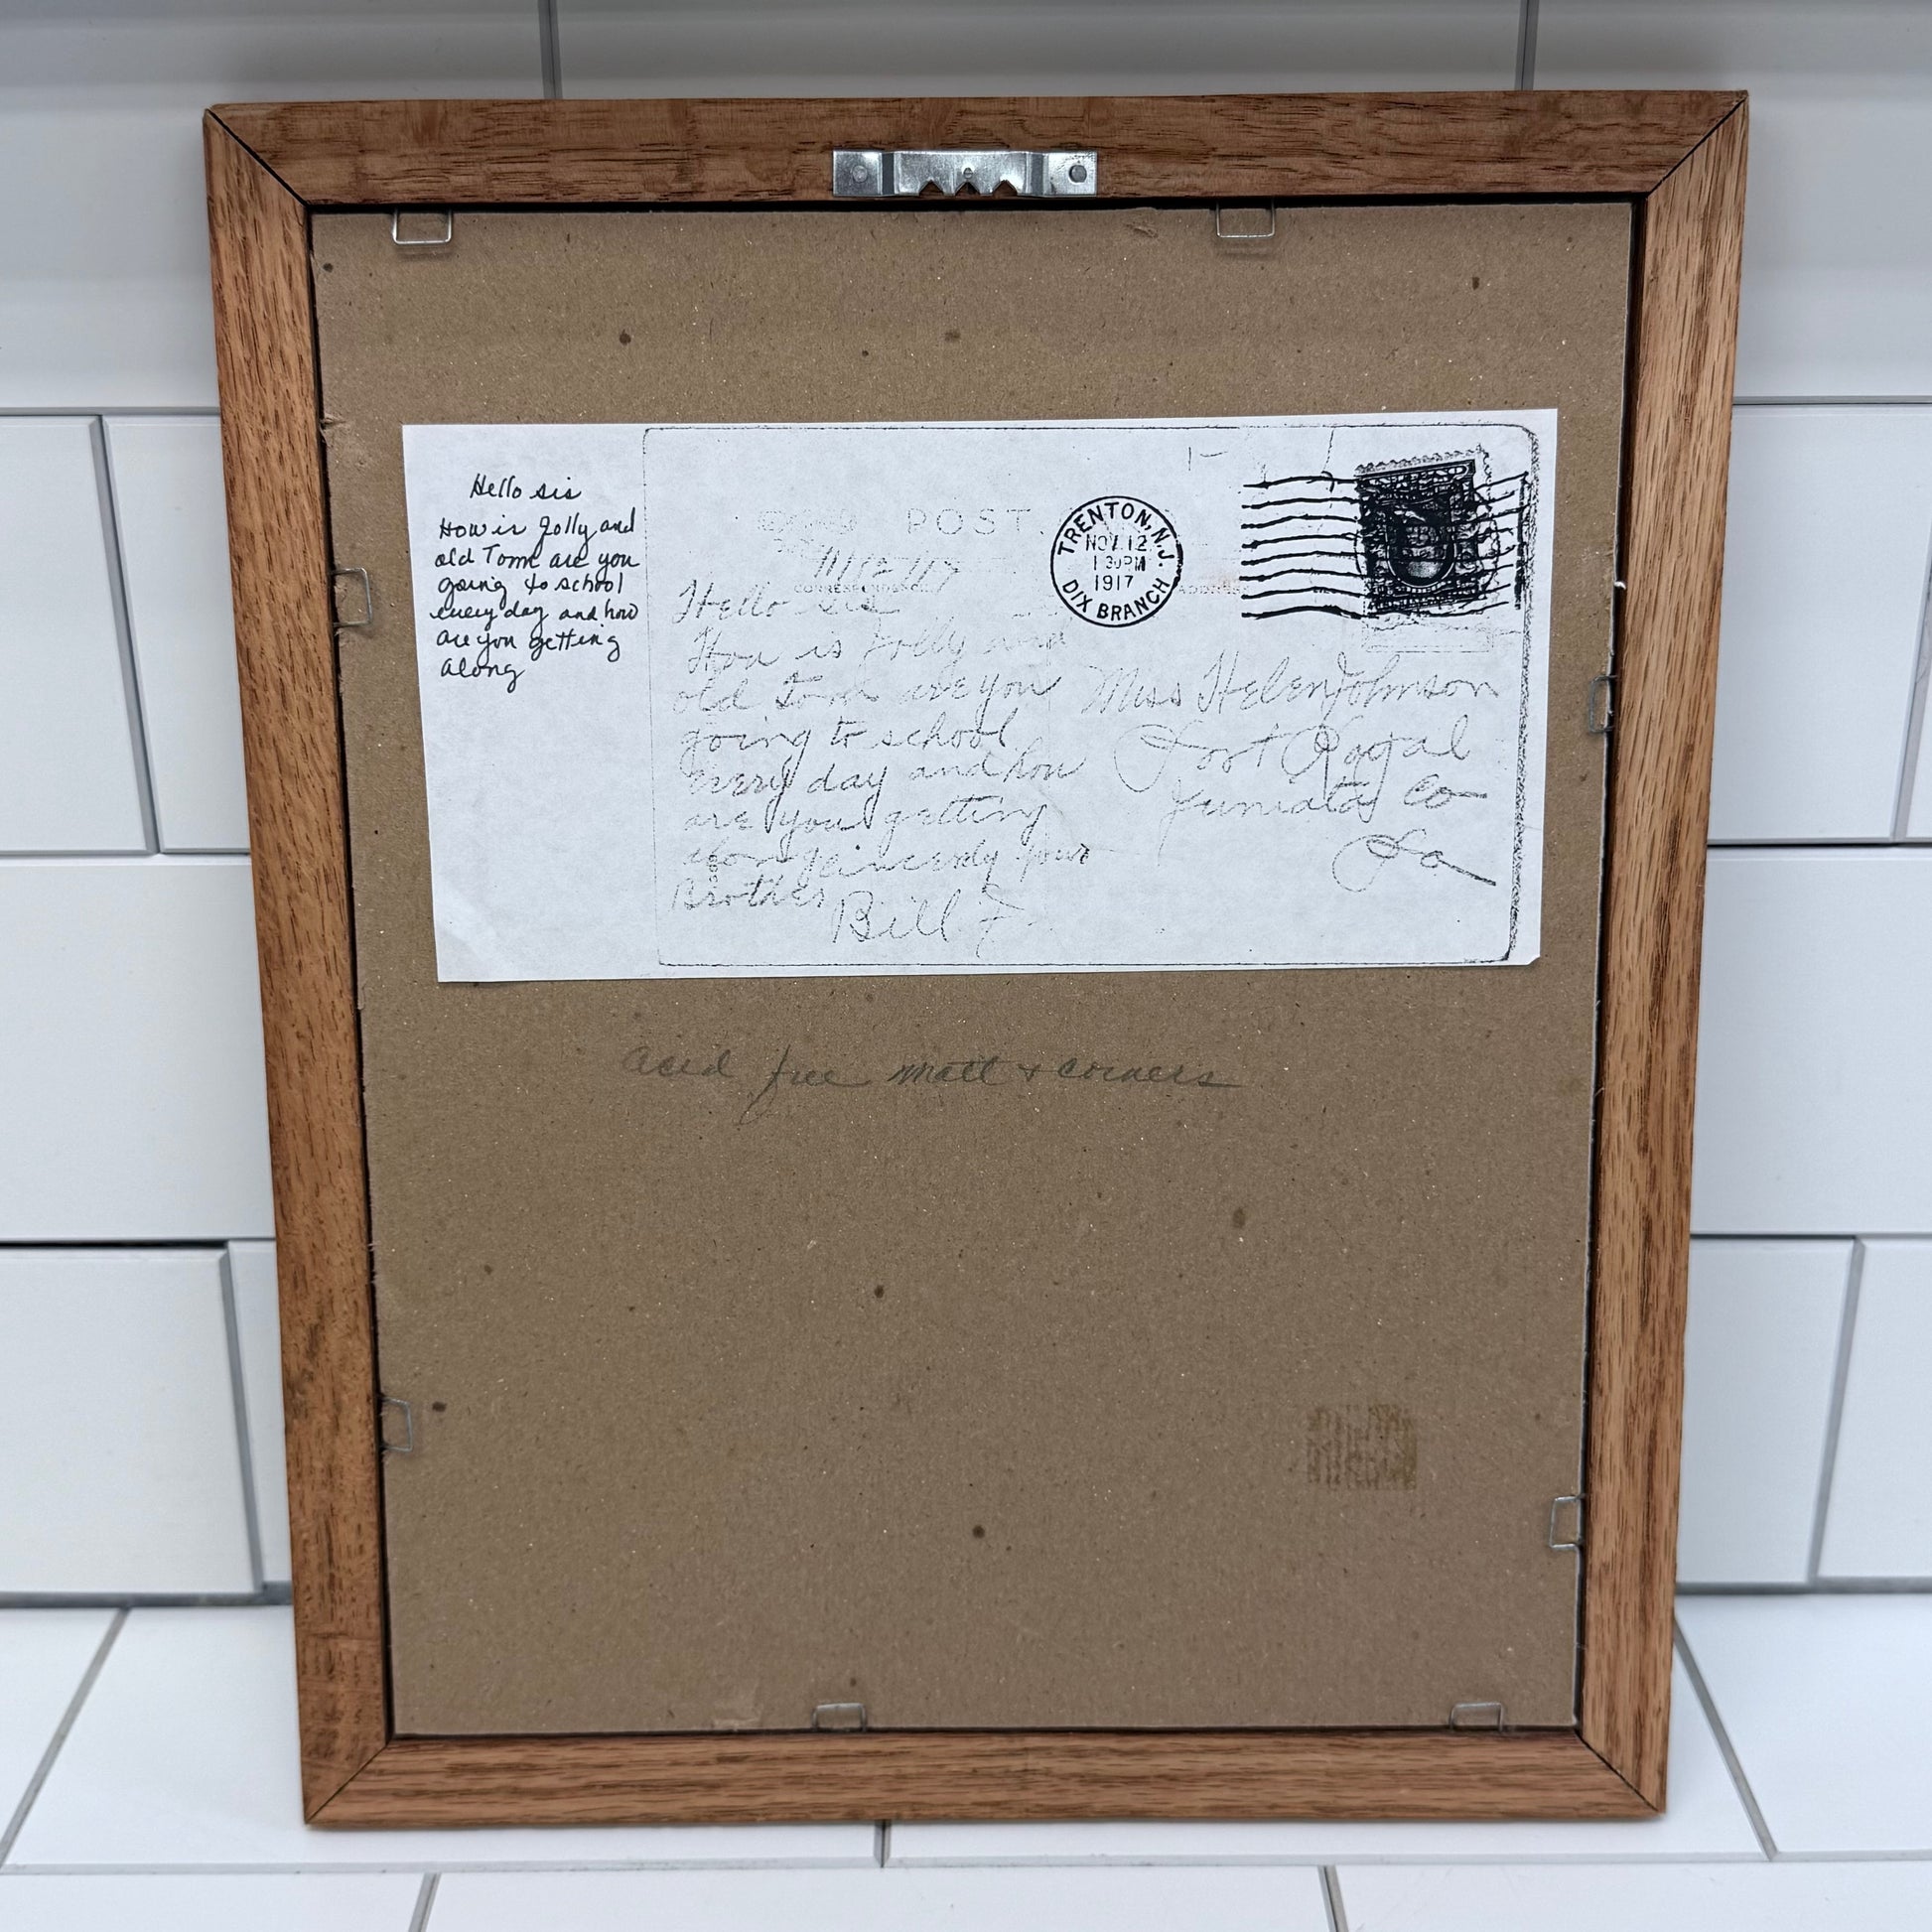 Hello sis
How is Jolly and
old Tom are you
going to school
every day and how
are you getting
along
POST
TRENTON, N.J.
NOV. 12
1 30PM
1917
DIX BRANCH
CORRESPONDENCE
ADDRESS
Hello Sis
How is Jolly and
old Tom are you
going to school
every day and how
are you getting
along sincerely your
Brother
Bill J
Miss Helen Johnson
Port Royal
Juniata Co
Pa
acid free matt + corners